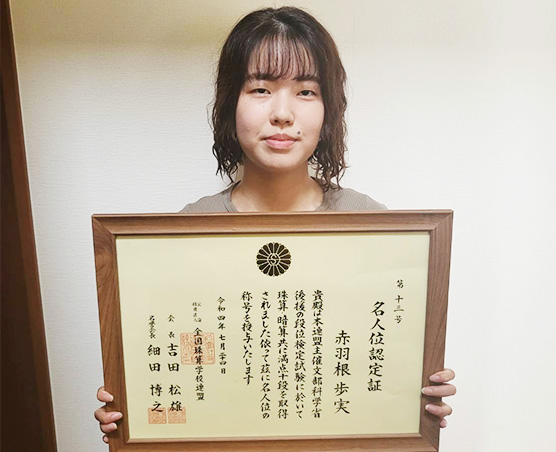 第十三号
名人位認定証
赤羽根歩実
貴殿は本連盟主催文部科学省
後援の段位検定試験に於いて
珠算暗算共に満点十段を取得
されました依って茲に名人位の
称号を授与いたします
令和四年七月二十四日
全国珠算学校連盟
会長 吉田松雄
名誉会長 細田博之